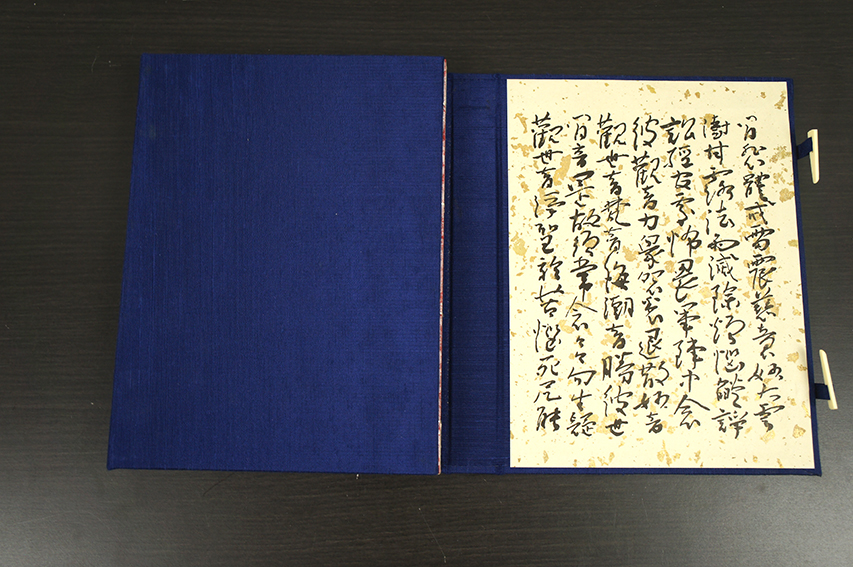 間悲體戒雷震慈意妙大雲
澍甘露法雨滅除煩惱燄諍
訟經官處怖畏軍陣中念
彼觀音力眾怨悉退散妙音
觀世音梵音海潮音勝彼世
間音是故須常念々々勿生疑
觀世音淨聖於苦惱死厄能